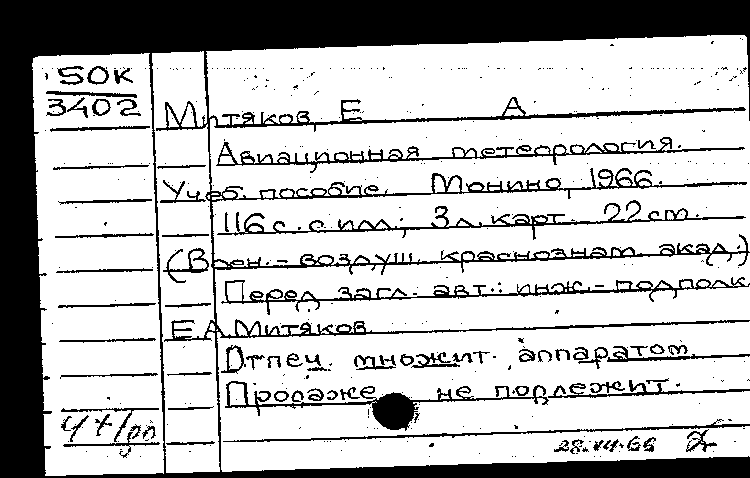 50К
3402
Митяков, Е А
Авиационная метеорология.
Учеб. пособие. Монино, 1966.
116 с. с илл.; 3 л. карт. 22 см.
(Воен.-воздуш. краснознам. акад.)
Перед загл. авт.: инж.-подполк.
Е.А. Митяков.
Отпеч. множит. аппаратом.
Продаже не подлежит.
28.VII.66